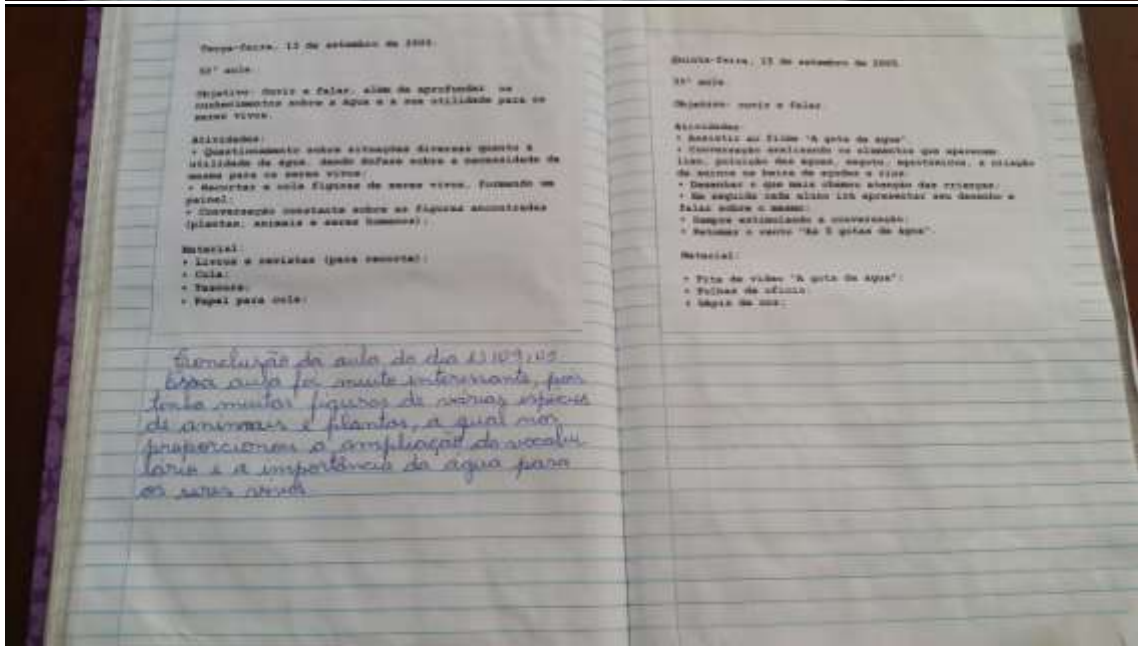 Terça-feira, 13 de setembro de 2005.
32ª aula.
Objetivo: Ouvir e falar, além de aprofundar os
conhecimentos sobre a água e a sua utilidade para os
seres vivos.
Atividades:
• Questionamento sobre situações diversas quanto à
utilidade da água, dando ênfase sobre a necessidade da
mesma para os seres vivos;
• Recortar e cola figuras de seres vivos, formando um
painel;
• Conversação constante sobre as figuras encontradas
(plantas, animais e seres humanos);
Material:
• Livros e revistas (para recorte);
• Cola;
• Tesoura;
• Papel para cola;
Conclusão da aula do dia 13/09/05
Essa aula foi muito interessante, pois
tinha muitas figuras de várias espécies
de animais e plantas, a qual nos
proporcionou a ampliação do vocabu
lário e a importância da água para
os seres vivos
Quinta-feira, 15 de setembro de 2005.
33ª aula.
Objetivo: ouvir e falar.
Atividades:
• Assistir ao filme "A gota de água".
• Conversação analisando os elementos que aparecem
lixo, poluição das águas, esgoto, agrotóxicos, a criação
de suínos na beira de açudes e rios;
• Desenhar o que mais chamou atenção das crianças;
• Em seguida cada aluno irá apresentar seu desenho e
falar sobre o mesmo;
• Sempre estimulando a conversação;
• Retomar o canto "As 5 gotas de água".
Material:
• Fita de vídeo "A gota de água";
• Folhas de ofício
• Lápis de cor;